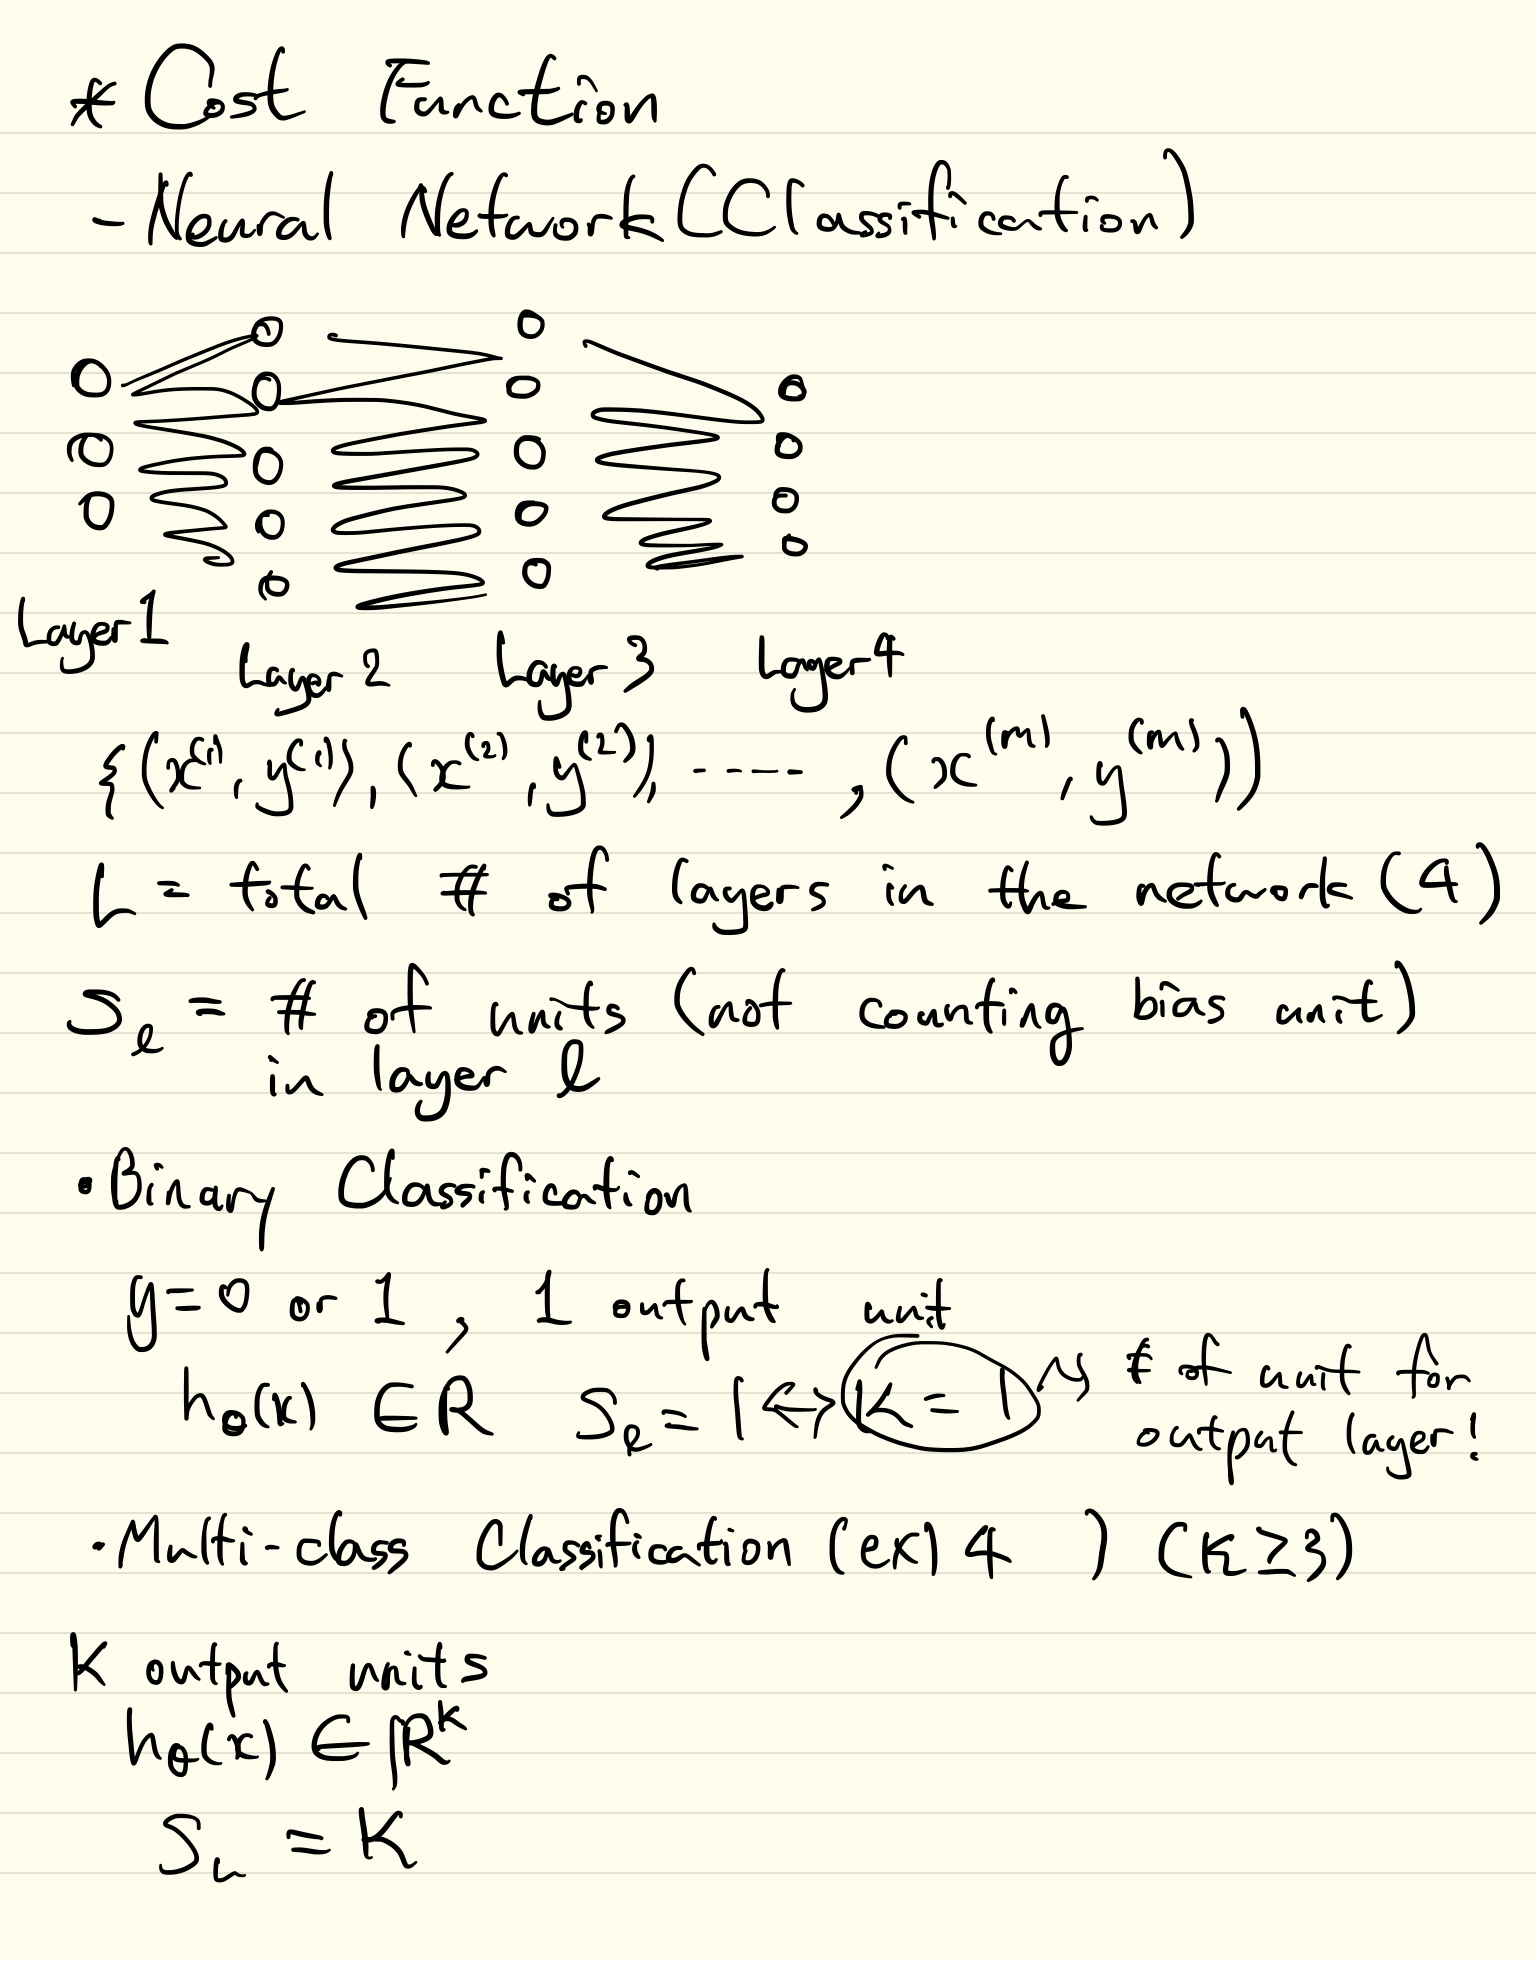 * Cost Function
- Neural Network (Classification)
Layer 1
Layer 2
Layer 3
Layer 4
{(x⁽¹⁾, y⁽¹⁾), (x⁽²⁾, y⁽²⁾), ----- , (x⁽ᵐ⁾, y⁽ᵐ⁾))
L = total # of layers in the network (4)
Sₗ = # of units (not counting bias unit)
in layer l
• Binary Classification
y = 0 or 1 , 1 output unit
hθ(x) ∈ R Sₗ = 1 ↔ K = 1 → # of unit for
output layer!
• Multi-class Classification (ex) 4 ) (K ≥ 3)
K output units
hθ(x) ∈ ℝᴷ
S_L = K